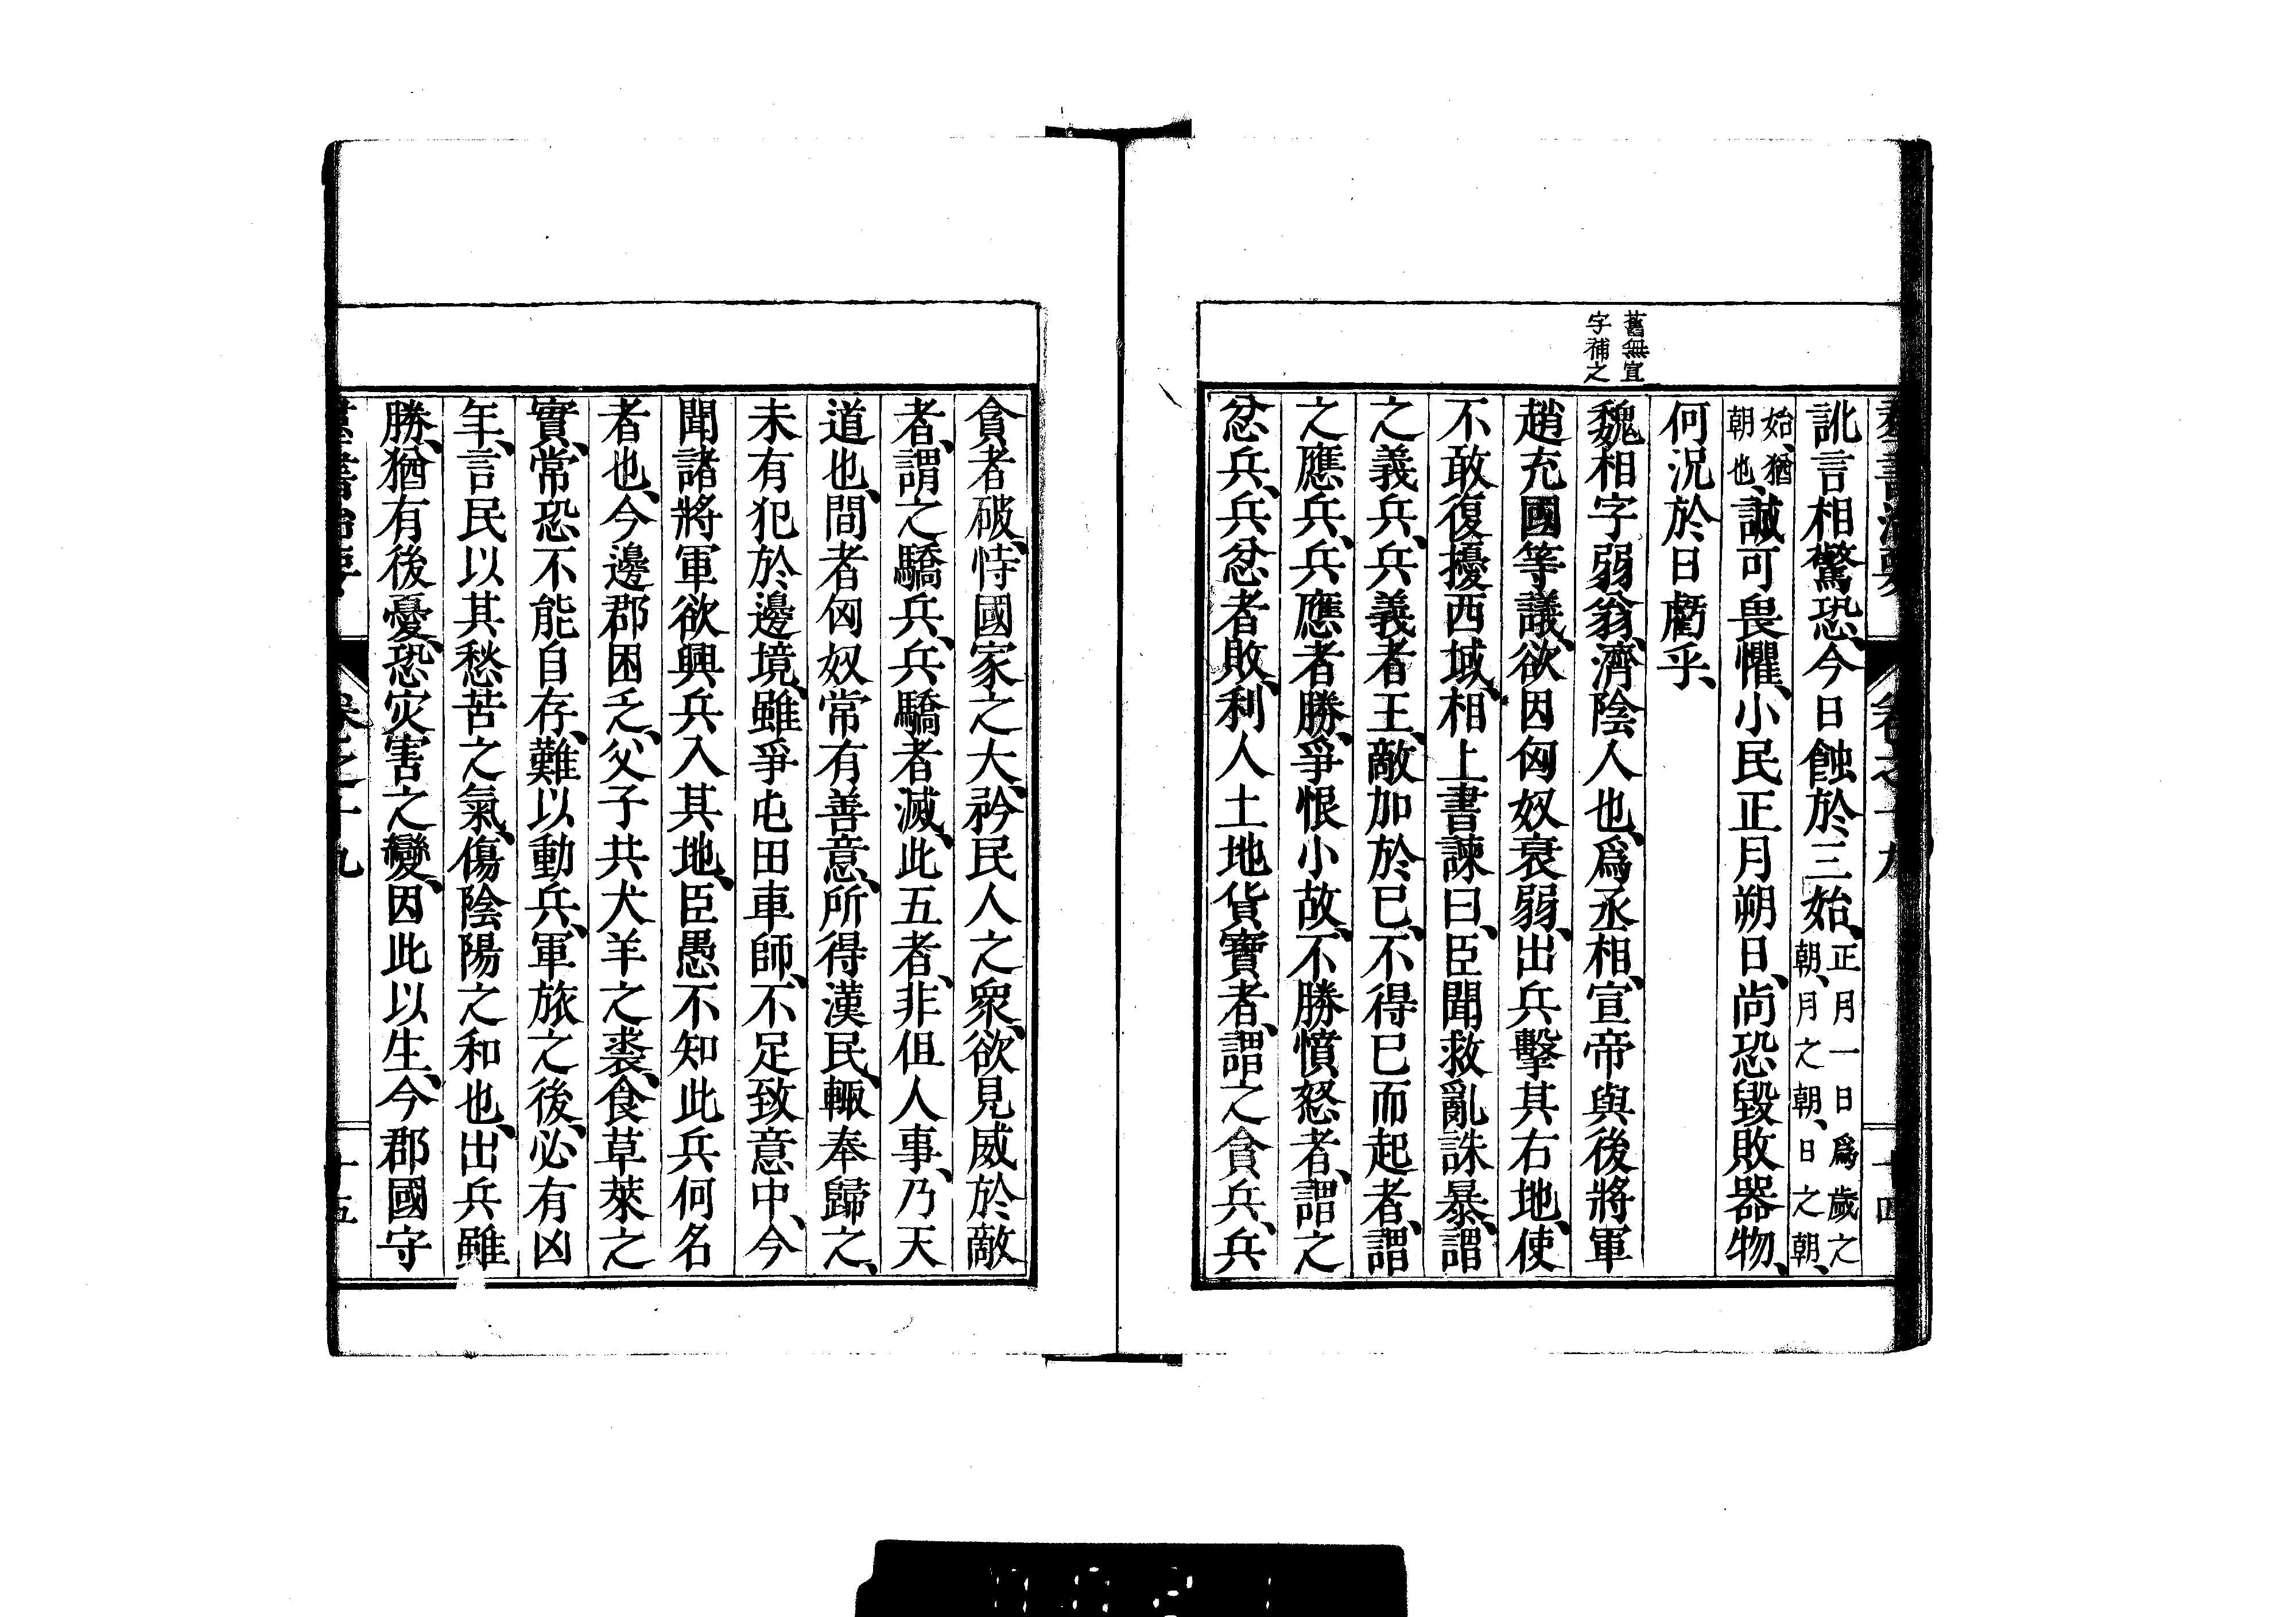 羣書治要 卷之十九 十四
訛言相驚恐、今日蝕於三始、正月一日爲歲之朝、月之朝、日之朝、
始、猶朝也、誠可畏懼、小民正月朔日、尚恐毀敗器物、
何況於日虧乎、
舊無宣字補之
魏相字弱翁、濟陰人也、爲丞相、宣帝與後將軍
趙充國等議、欲因匈奴衰弱、出兵擊其右地、使
不敢復擾西域、相上書諫曰、臣聞救亂誅暴、謂
之義兵、兵義者王、敵加於巳、不得巳而起者、謂
之應兵、兵應者勝、爭恨小故、不勝憤怒者、謂之
忿兵、兵忿者敗、利人土地貨寶者、謂之貪兵、兵
貪者破、恃國家之大、矜民人之衆、欲見威於敵
者、謂之驕兵、兵驕者滅、此五者、非但人事、乃天
道也、間者匈奴常有善意、所得漢民、輙奉歸之、
未有犯於邊境、雖爭屯田車師、不足致意中、今
聞諸將軍欲興兵入其地、臣愚不知此兵何名
者也、今邊郡困乏、父子共犬羊之裘、食草萊之
實、常恐不能自存、難以動兵、軍旅之後、必有凶
年、言民以其愁苦之氣、傷陰陽之和也、出兵雖
勝、猶有後憂、恐灾害之變、因此以生、今郡國守
羣書治要 卷之十九 十五